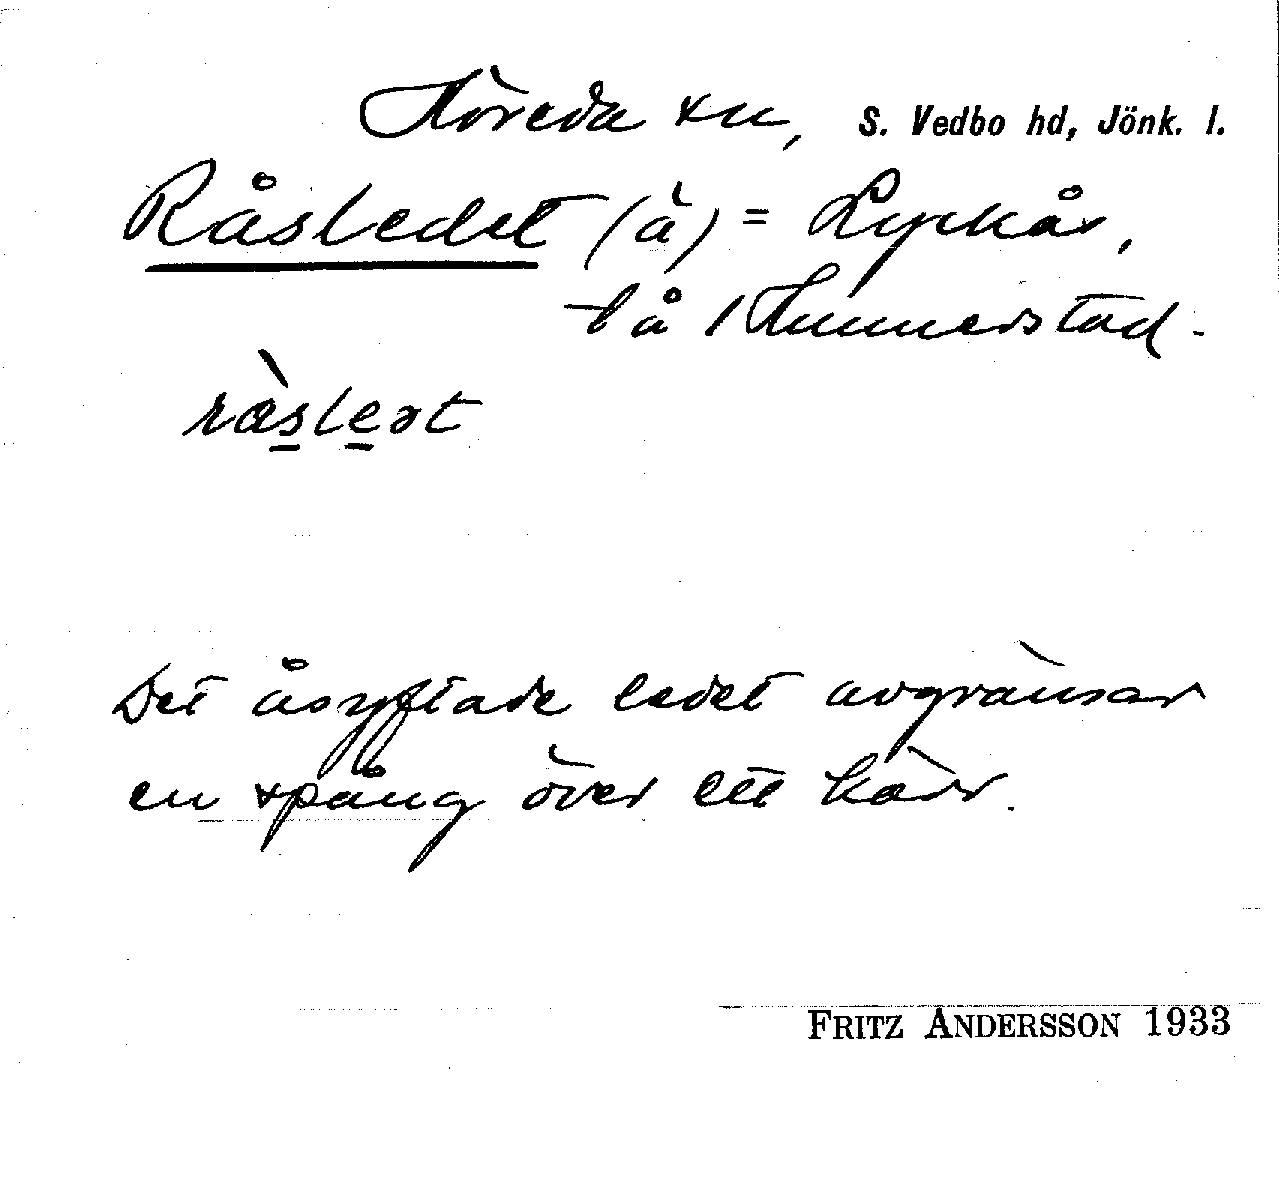 Höreda sn, S. Vedbo hd, Jönk. l.
Råsledet (ä) = Lyckås,
tå / Hunnerstad.
ràsleət
Det åsyftade ledet avgränsar
en spång över ett kärr.
FRITZ ANDERSSON 1933